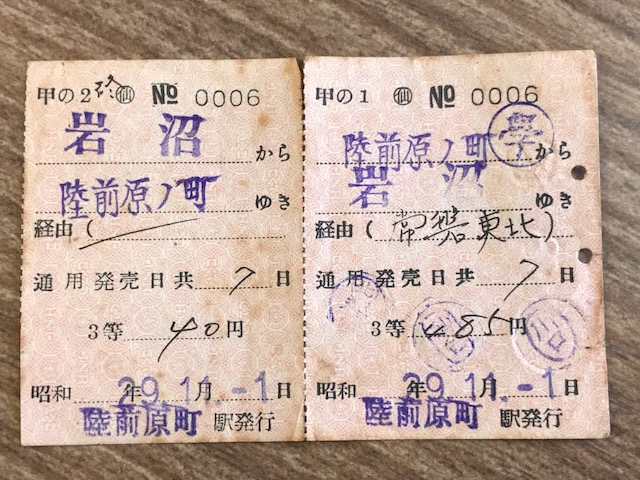 甲の2 ㊂ № 0006
岩沼 から
陸前原ノ町 ゆき
経由(
通用発売日共 7 日
3等 40円
昭和 29年11月-1日
陸前原町 駅発行
甲の1 № 0006
陸前原ノ町 から 學
岩沼 ゆき
経由(常磐東北)
通用発売日共 7 日
3等 485円
昭和 29年11月-1日
陸前原町 駅発行